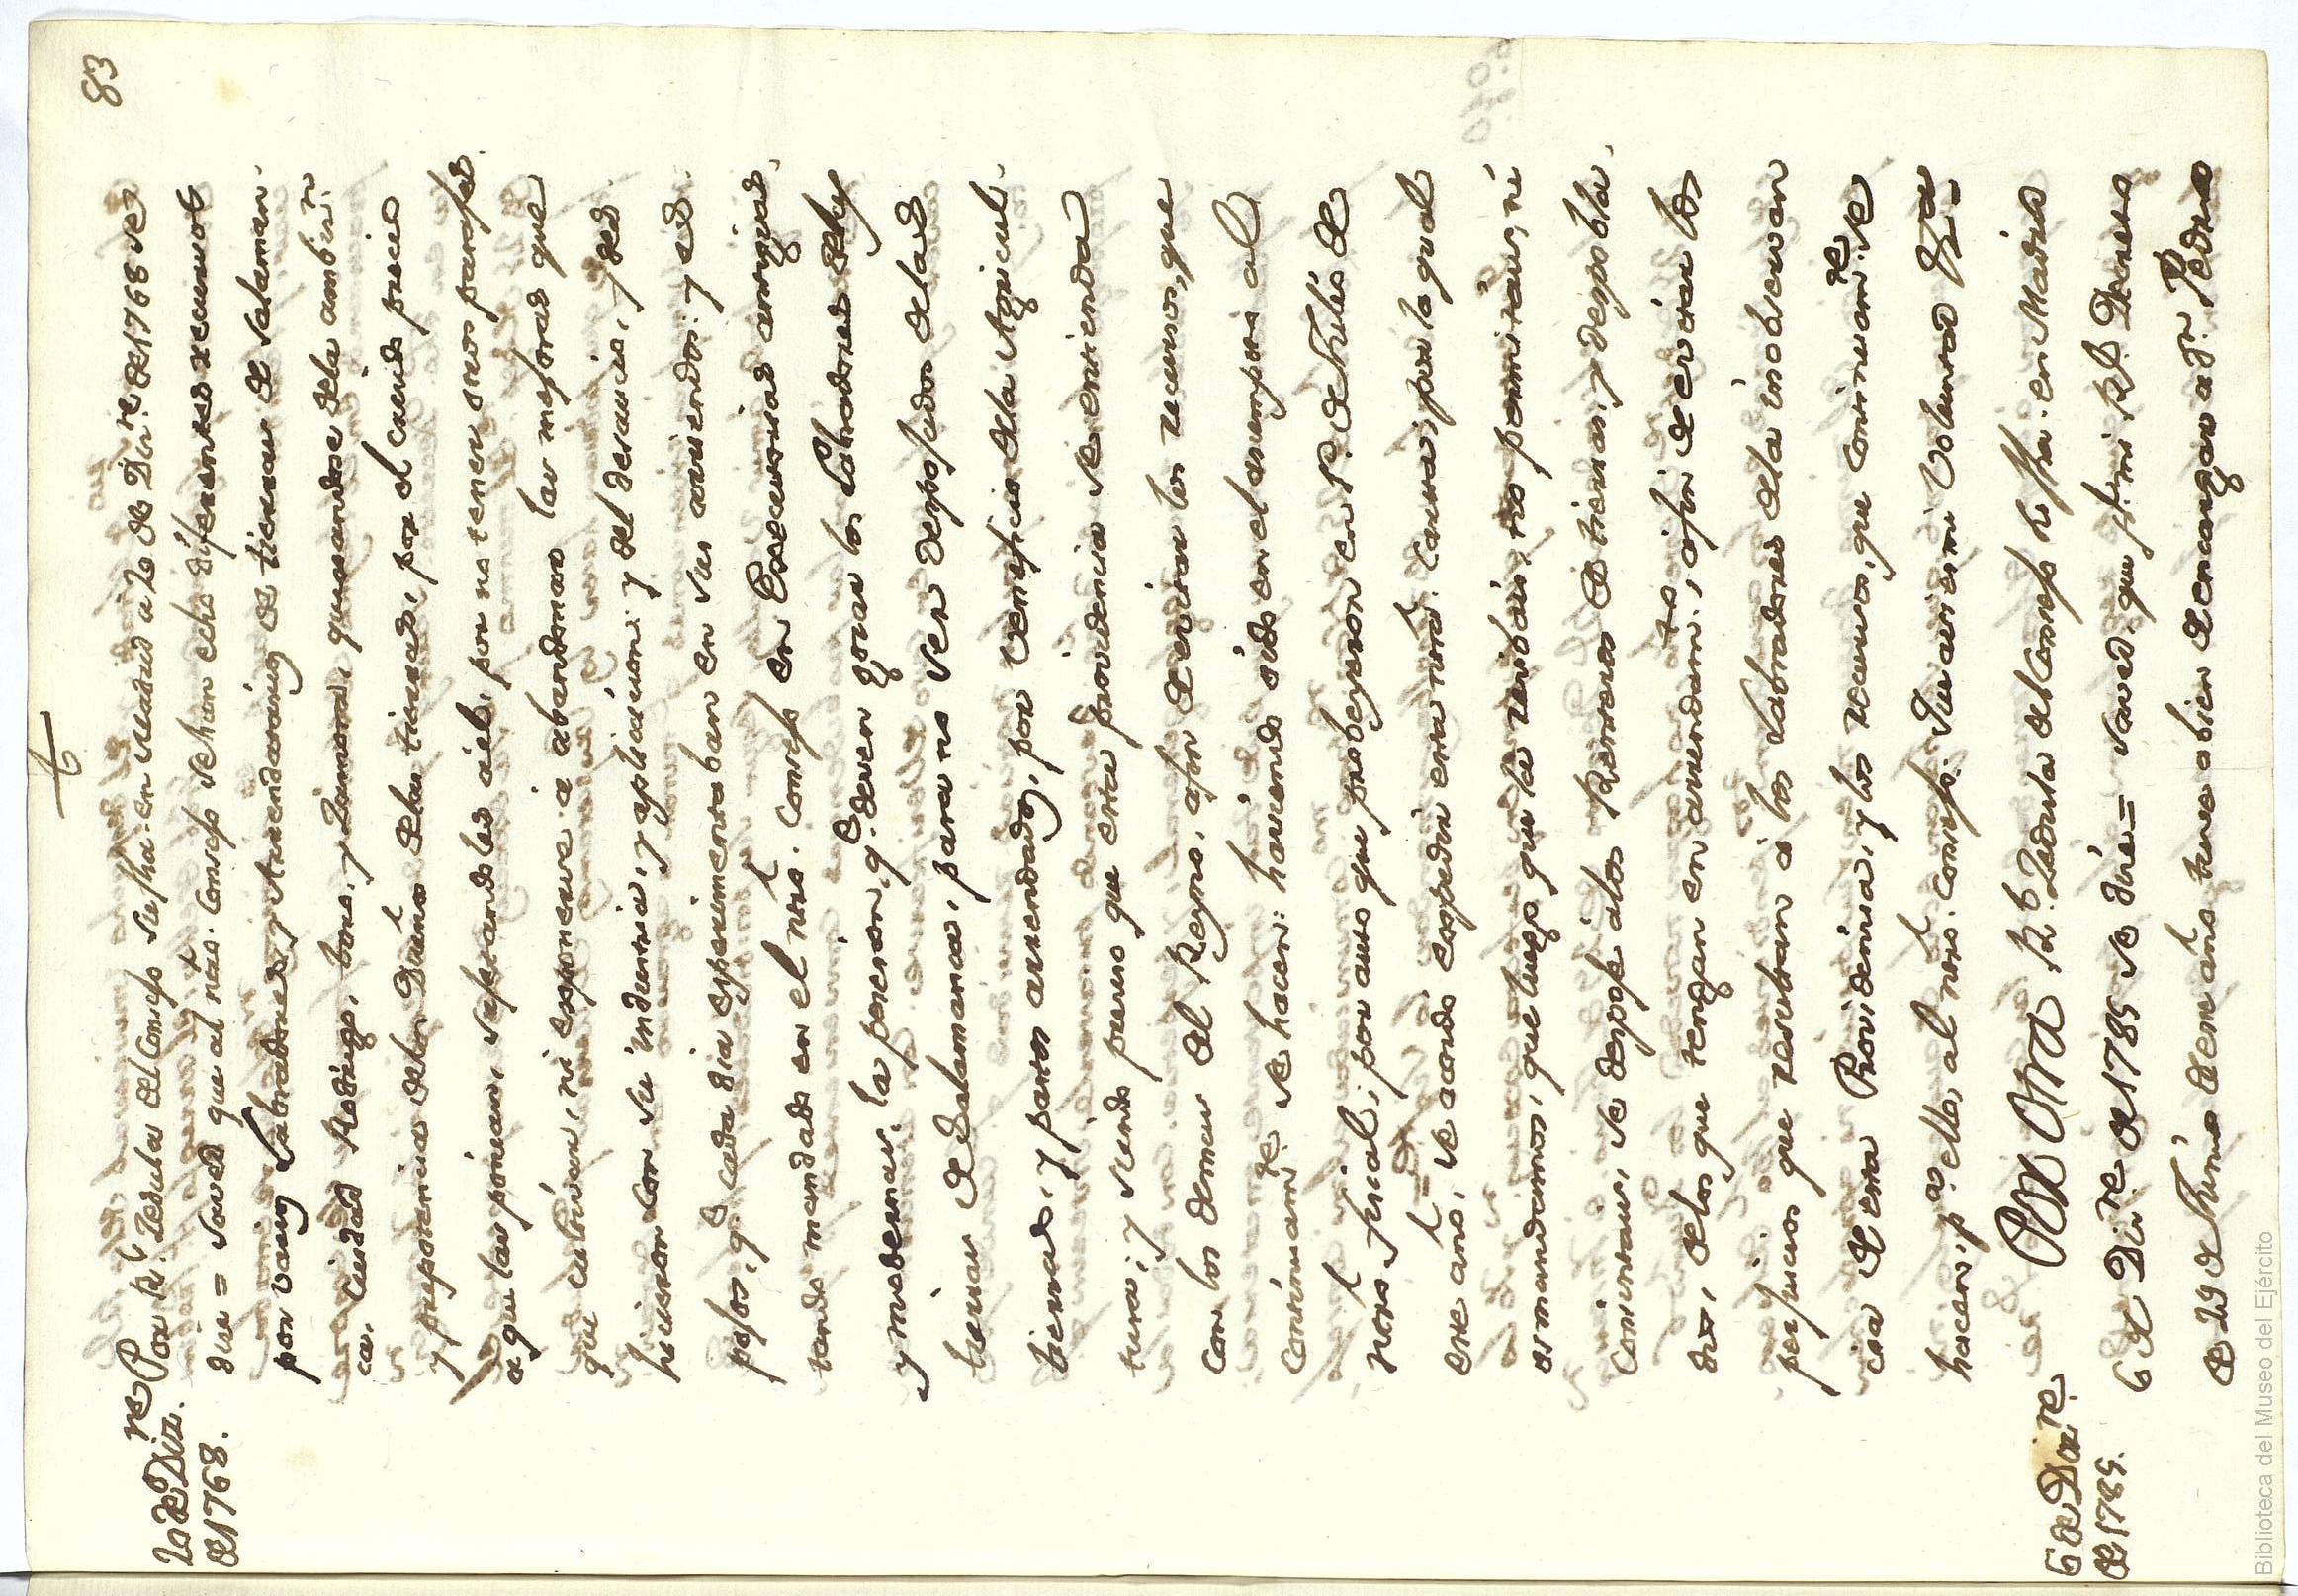 83
20 de Diz.re
de 1768.
Por R.l Zedula del Consejo su fha. en Madrid a 20 de Diz.re de 1768 se
dice = saved que al nro. Consejo se han echo diferentes recursos
por varios Labradores, y Arrendatarios de tierras de Salaman-
ca, Ciudad Rodrigo, Toro, y Zamora, quexandose de la ambiz.n
y prepotencia de los Dueños de las tierras, por el crecido precio
a que las ponian,
que cultivan, ni esponerse a abandonar las mejoras que
hicieron con su industria, y aplicacion: y del desaucio, y des-
pojos, q.e cada dia esperimentaban en sus arriendos: y es-
tando mandado en el nro. Consejo en Executorias antiguas,
y modernas, la posesion, q.e deven gozar los Labradores de las
tierras de Salamanca, para no ser despojados de las
tierras, y pastos arrendados, por beneficio de la Agricul-
tura; y siendo preciso que esta providencia se entienda
con los demas del Reyno, a fin de evitar los recursos, que
continuam.te se hacen: haviendo oido en el asumpto al
nro. fiscal; por auto que proveyeron en 1º de Julio de
este año, se acordó expedir esta nra. Carta; por la qual
os mandamos, que luego que la recivais, no permitais, ni
consintais, se despoje a los Renteros de tierras, y despobla-
dos, de los que tengan en arrendam.to, a fin de evitar los
perjuicios que resultan a los Labradores de la inobservan
cia de esta Providencia, y los recursos, que continuam.te se
hacen, p.a ello, al nro. Consejo. Que asi es mi voluntad &.a
6 de Diz.re
de 1785.
Por otra R.l Zedula del Consejo su fha. en Madrid
6 de Diz.re de 1785 se dice = saved, que p.r mi R.l Decreto
tuve a bien de encargar a d.n Pedro
Biblioteca del Museo del Ejército